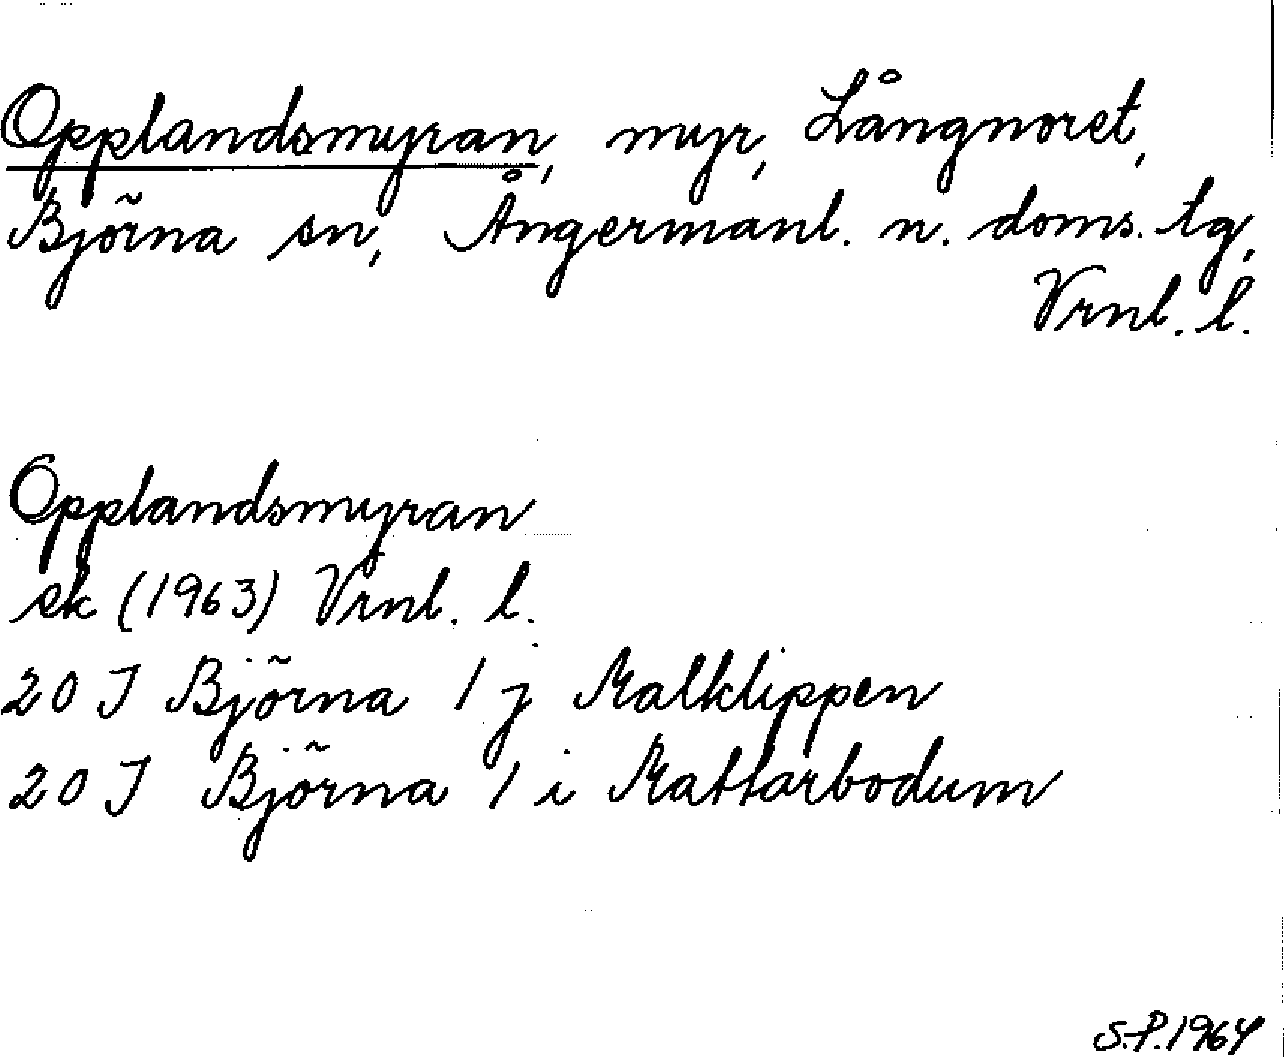 Opplandsmyran, myr, Långnoret,
Björna sn, Ångermanl. n. doms. tg,
Vrnl. l.
Opplandsmyran
ek (1963) Vrnl. l.
20 J Björna 1 j Malklippen
20 J Björna 1 i Mattarbodum
S.P. 1964